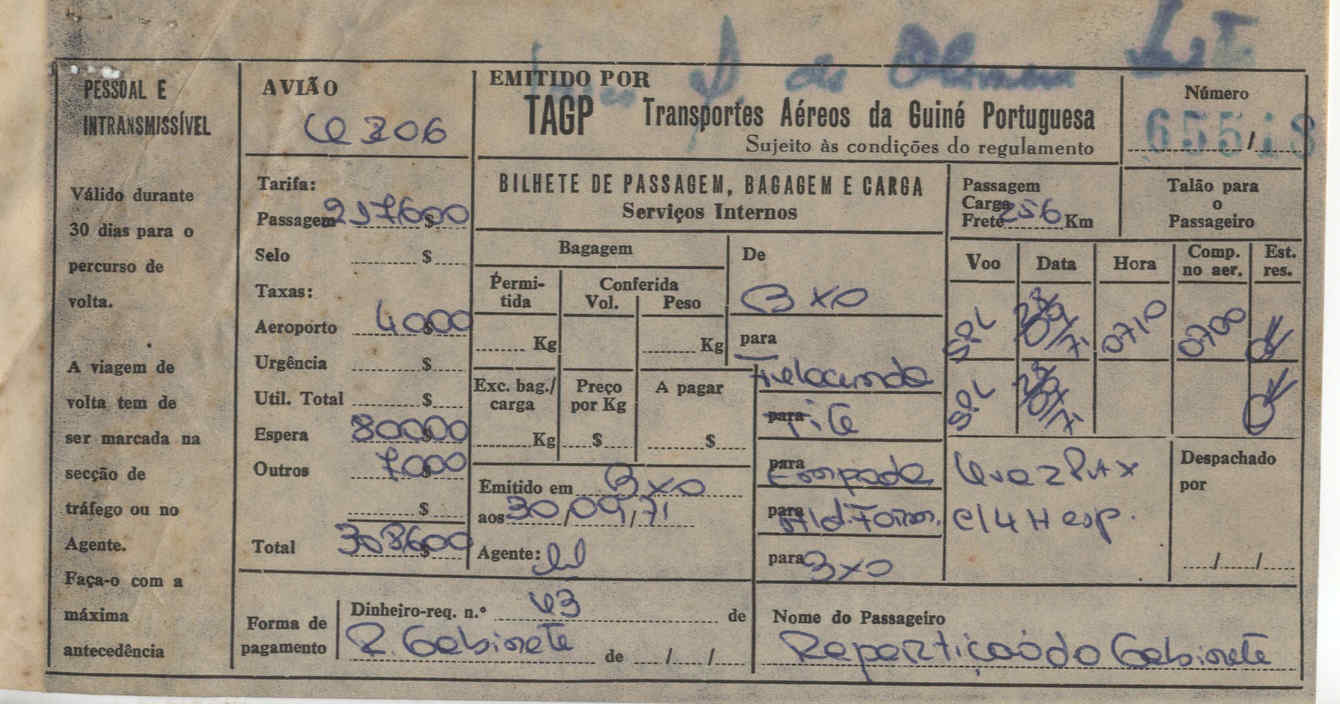 PESSOAL E
INTRANSMISSÍVEL
Válido durante
30 dias para o
percurso de
volta.
A viagem de
volta tem de
ser marcada na
secção de
tráfego ou no
Agente.
Faça-o com a
máxima
antecedência
AVIÃO
Tarifa:
Passagem 217600 $
Selo $
Taxas:
Aeroporto 4000 $
Urgência $
Util. Total $
Espera 80000 $
Outros 7000 $
$
Total 308600 $
EMITIDO POR
TAGP Transportes Aéreos da Guiné Portuguesa
Sujeito às condições do regulamento
Número
65518 /
BILHETE DE PASSAGEM, BAGAGEM E CARGA
Serviços Internos
Passagem
Carga
Frete 256 Km
Talão para
o
Passageiro
Bagagem
Permi-
tida
Conferida
Vol. Peso
Kg Kg
Exc. bag./
carga
Preço
por Kg
A pagar
Kg $ $
Emitido em BXO
aos 30/09/71
Agente:
De
BXO
para
para
para Empada
para Ald. Formosa
para BXO
Voo Data Hora Comp.
no aer. Est.
res.
SPL 0710 0700 OK
SPL OK
c/4H esp.
Despachado
por
/ /
Forma de
pagamento
Dinheiro-req. n.º 43 de
R. Gabinete de / /
Nome do Passageiro
Repartição do Gabinete